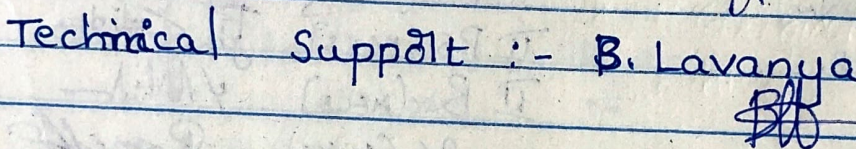 Technical Support :- B. Lavanya